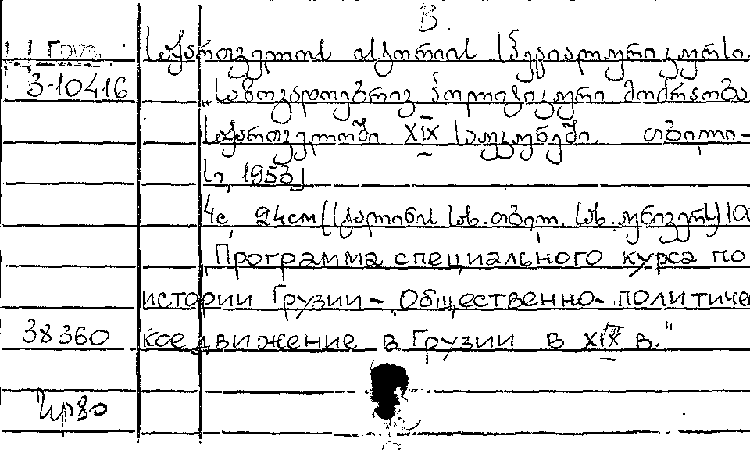 В.
საქართველოს ისტორიის სპეციალური კურსი
3-10416 „საზოგადოებრივ პოლიტიკური მოძრაობა
საქართველოში XIX საუკუნეში. თბილი-
სი, 1953]
4с, 24см (სტალინის სახ. თბილ. სახ. უნივერს)
Программа специального курса по
истории Грузии - Общественно-политиче
38360 кое движение в Грузии в XIX в."